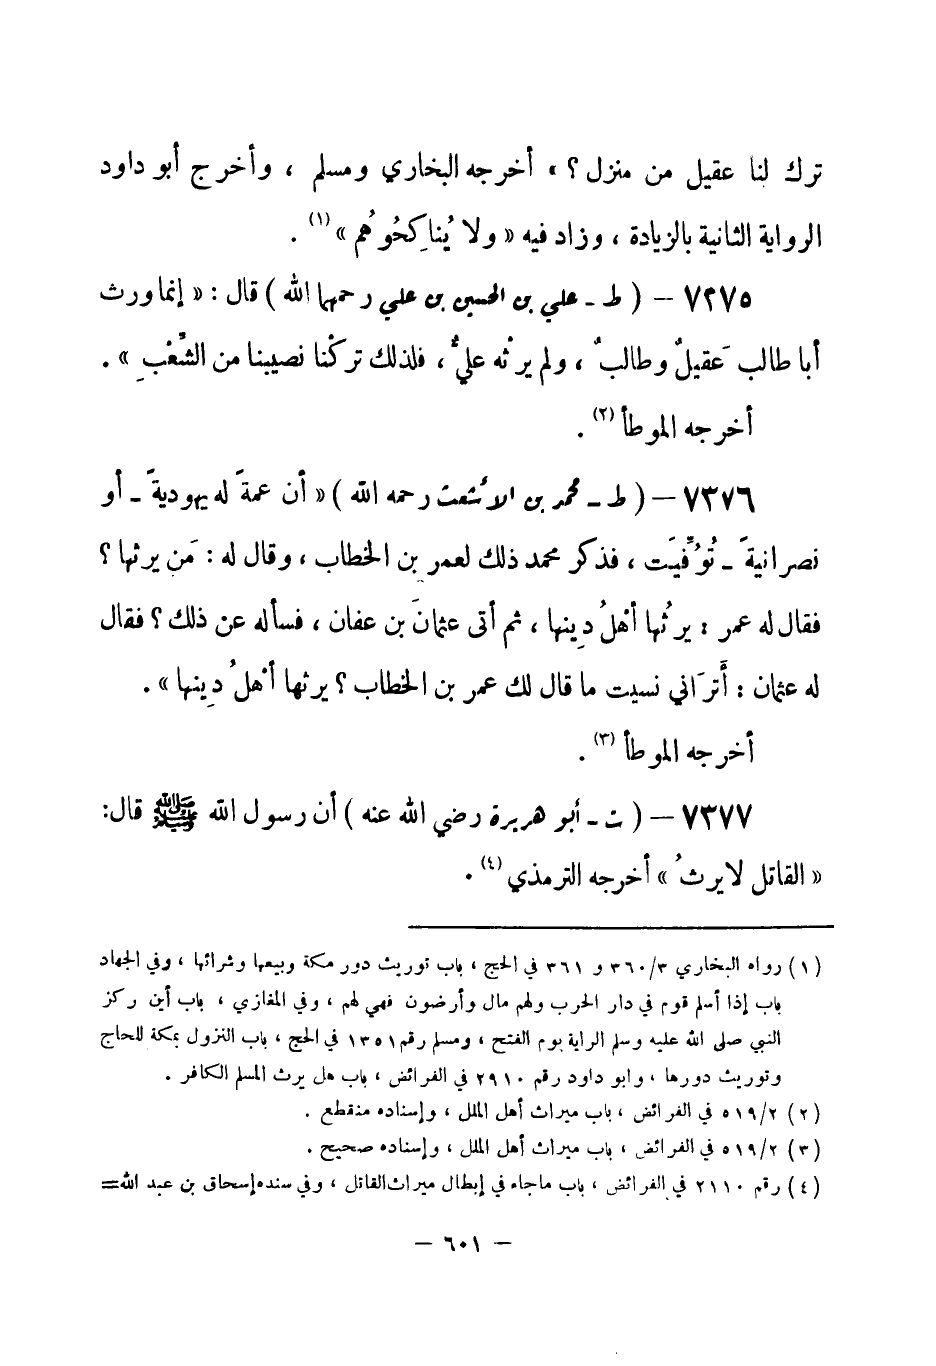 ترك لنا عقيل من منزل ؟ » أخرجه البخاري ومسلم ، وأخرج أبو داود
الرواية الثانية بالزيادة ، وزاد فيه « ولا يُناكِحُوهُم » (١) .
٧٣٧٥ – ( ط - علي بن الحسين بن علي رحمهما الله ) قال : « إنما ورث
أبا طالب عَقيلٌ وطالبٌ ، ولم يرثْه عليٌّ ، فلذلك تركْنا نصيبنا من الشِّعْبِ » .
أخرجه الموطأ (٢) .
٧٣٧٦ – ( ط - محمد بن الأشعث رحمه الله ) « أن عمةً له يهوديةً - أو
نصرانيةً - تُوُفِّيَت ، فذكر محمد ذلك لعمر بن الخطاب ، وقال له : مَن يرثها ؟
فقال له عمر : يرثُها أهْلُ دِينها ، ثم أتى عثمانَ بن عفان ، فسأله عن ذلك ؟ فقال
له عثمان : أَترَاني نسيت ما قال لك عمر بن الخطاب ؟ يرثها أهْلُ دِينها » .
أخرجه الموطأ (٣) .
٧٣٧٧ – ( ت - أبو هريرة رضي الله عنه ) أن رسول الله ﷺ قال:
« القاتل لا يرثُ » أخرجه الترمذي (٤) .
(١) رواه البخاري ٣/٣٦٠ و ٣٦١ في الحج ، باب توريث دور مكة وبيعها وشرائها ، وفي الجهاد
باب إذا أسلم قوم في دار الحرب ولهم مال وأرضون فهي لهم ، وفي المغازي ، باب أين ركز
النبي صلى الله عليه وسلم الراية يوم الفتح ، ومسلم رقم ١٣٥١ في الحج ، باب النزول بمكة للحاج
وتوريث دورها ، وابو داود رقم ٢٩١٠ في الفرائض ، باب هل يرث المسلم الكافر .
(٢) ٢/٥١٩ في الفرائض ، باب ميراث أهل الملل ، وإسناده منقطع .
(٣) ٢/٥١٩ في الفرائض ، باب ميراث أهل الملل ، وإسناده صحيح .
(٤) رقم ٢١١٠ في الفرائض ، باب ماجاء في إبطال ميراث القاتل ، وفي سنده إسحاق بن عبد الله=
– ٦٠١ –